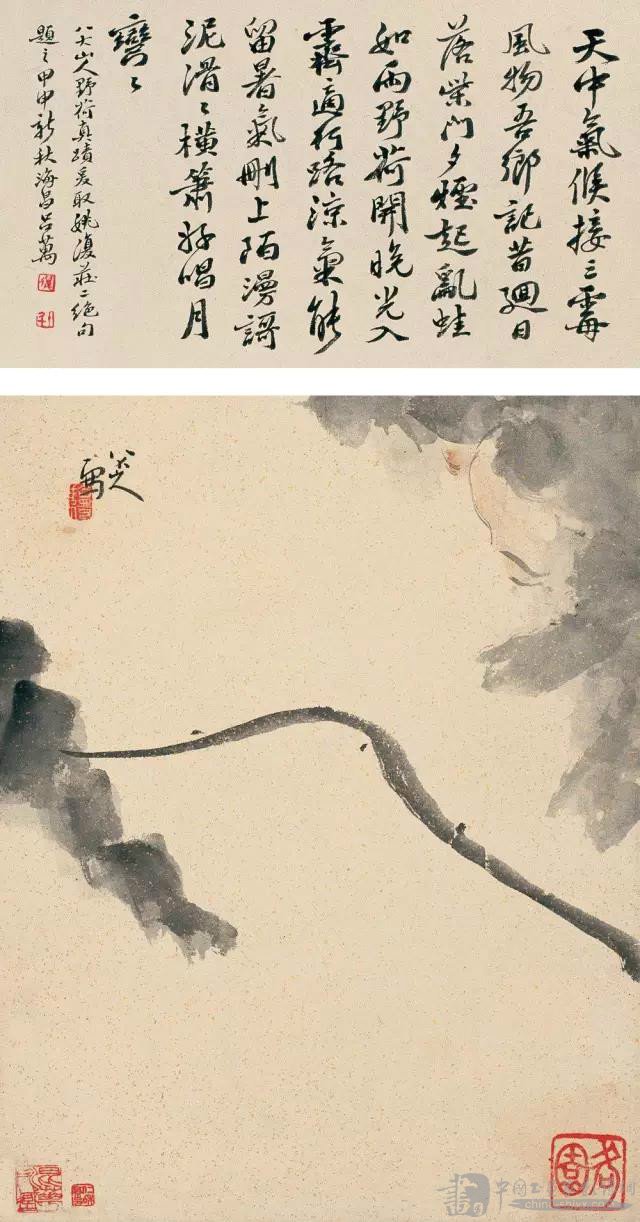 天中氣候接三霉
風物吾鄉記昔迴日
落柴門夕煙起亂蛙
如雨野荷開晚光入
霽適行路涼氣能
留暑氣刪上陌漫謌
泥滑〻橫簫好唱月
彎〻
八大山人野荷真蹟爰取姚復莊二絕句
題之甲申新秋海昌呂萬
八大
www.chinashjyx.com